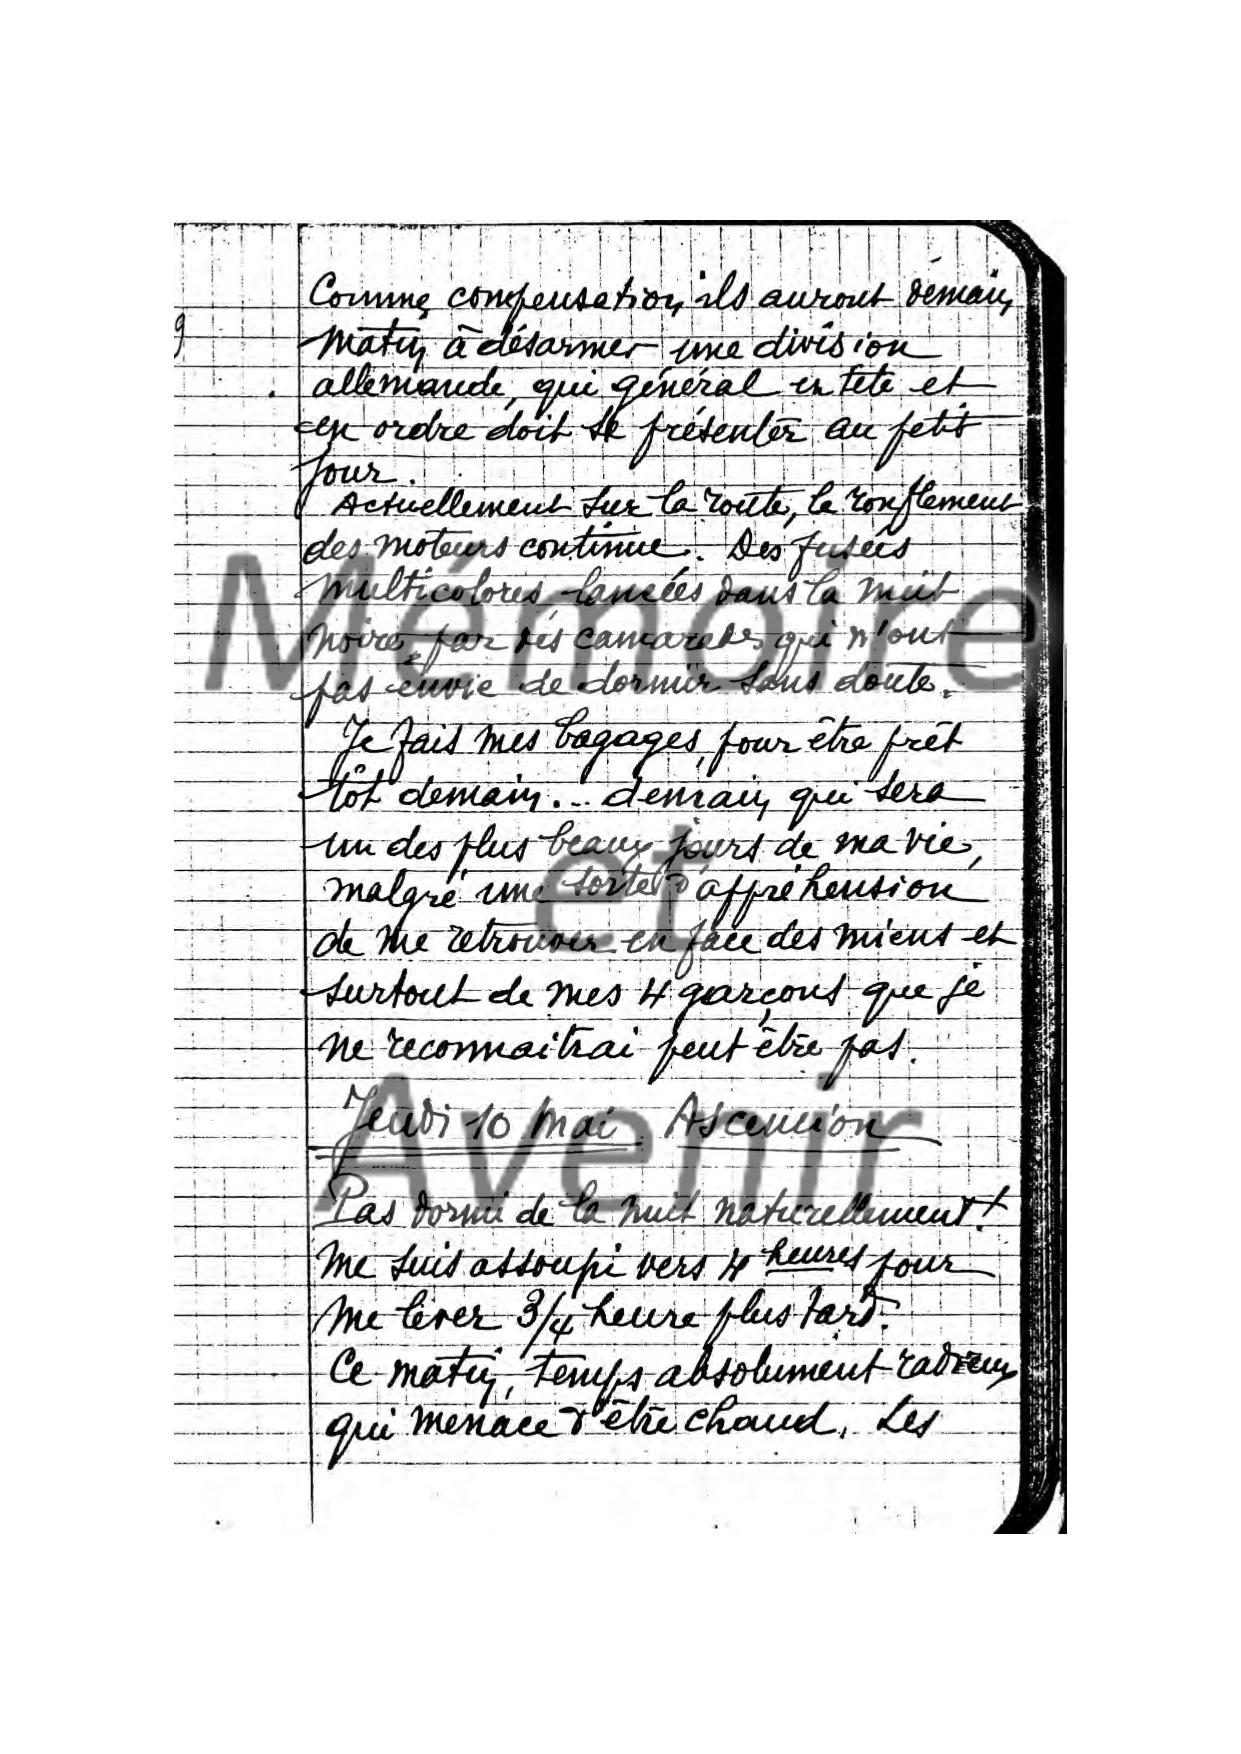 Comme compensation, ils auront demain
matin à désarmer une division
allemande, qui général en tête et
en ordre doit se présenter au petit
jour.
Actuellement sur la route, le ronflement
des moteurs continue. Des fusées
multicolores, lancées dans la nuit
noire, par des camarades qui n'ont
pas envie de dormir sans doute.
Je fais mes bagages, pour être prêt
tôt demain... demain, qui sera
un des plus beaux jours de ma vie,
malgré une sorte d'appréhension
de me retrouver en face des miens et
surtout de mes 4 garçons que je
ne reconnaitrai peut être pas.
Jeudi 10 Mai. Ascencion
Pas dormi de la nuit naturellement!
me suis assoupi vers 4 heures pour
me lever 3/4 heure plus tard.
Ce matin, temps absolument radieux
qui menace d'être chaud. Les
Mémoire
et
Avenir